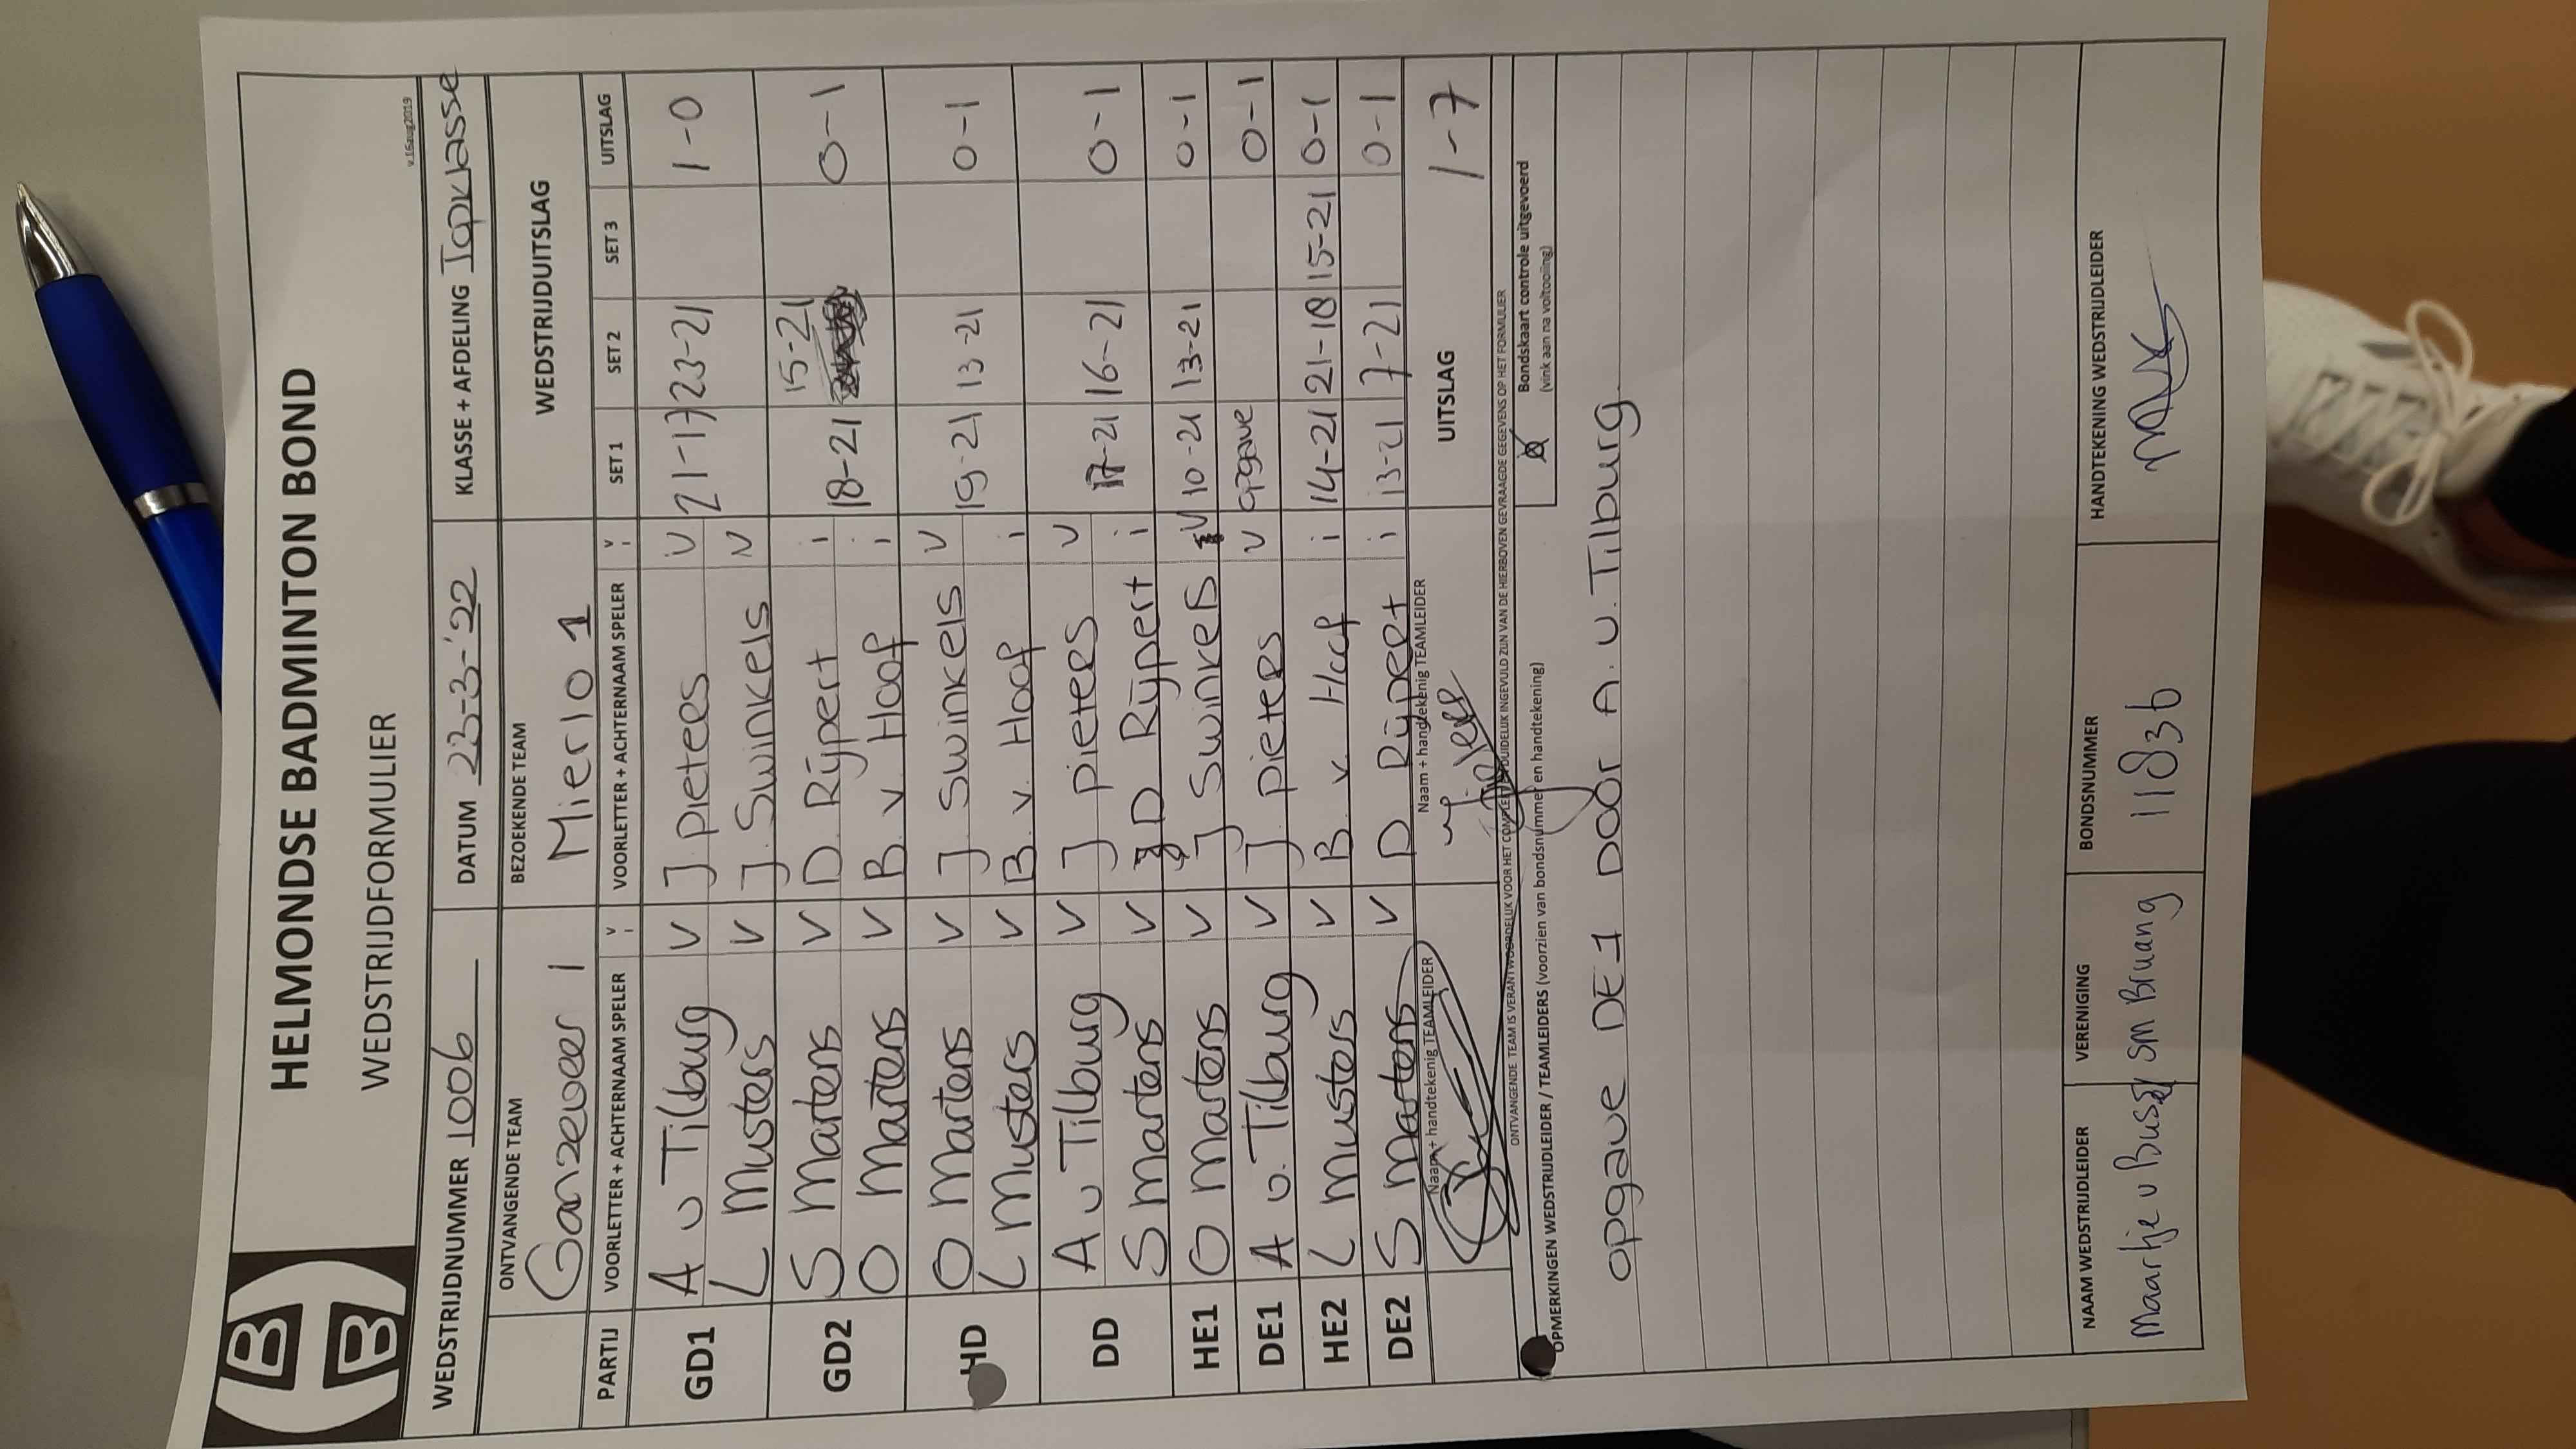 HBB
HELMONDSE BADMINTON BOND
WEDSTRIJDFORMULIER
v.16aug2019
WEDSTRIJDNUMMER 1006 DATUM 23-3-'22 KLASSE + AFDELING Topklasse
ONTVANGENDE TEAM BEZOEKENDE TEAM WEDSTRIJDUITSLAG
Ganzeveer 1 Mierlo 1
PARTIJ VOORLETTER + ACHTERNAAM SPELER V i VOORLETTER + ACHTERNAAM SPELER V i SET 1 SET 2 SET 3 UITSLAG
GD1 A v Tilburg V J pieters V 21-17 23-21 1-0
L Musters V J. Swinkels V
GD2 S Martens V D. Rijpert i 18-21 15-21 0-1
O Martens V B. v Hoof i
HD O Martens V J Swinkels V 19-21 13-21 0-1
L Musters V B. v. Hoof i
DD A v Tilburg V J pieters V 17-21 16-21 0-1
S Martens V D Rijpert i
HE1 O Martens V J Swinkels V 10-21 13-21 0-1
DE1 A v. Tilburg V J. pieters V opgave 0-1
HE2 L Musters V B v. Hoof i 14-21 21-18 15-21 0-1
DE2 S Martens V D Rijpert i 13-21 7-21 0-1
Naam + handtekenig TEAMLEIDER Naam + handtekenig TEAMLEIDER UITSLAG 1-7
ONTVANGENDE TEAM IS VERANTWOORDELIJK VOOR HET COMPLEET EN DUIDELIJK INGEVULD ZIJN VAN DE HIERBOVEN GEVRAAGDE GEGEVENS OP HET FORMULIER
OPMERKINGEN WEDSTRIJDLEIDER / TEAMLEIDERS (voorzien van bondsnummer en handtekening) Bondskaart controle uitgevoerd
(vink aan na voltooiing)
opgave DE1 Door A. v. Tilburg
NAAM WEDSTRIJDLEIDER VERENIGING BONDSNUMMER HANDTEKENING WEDSTRIJDLEIDER
Maartje v Bussel SM Bruang 11836